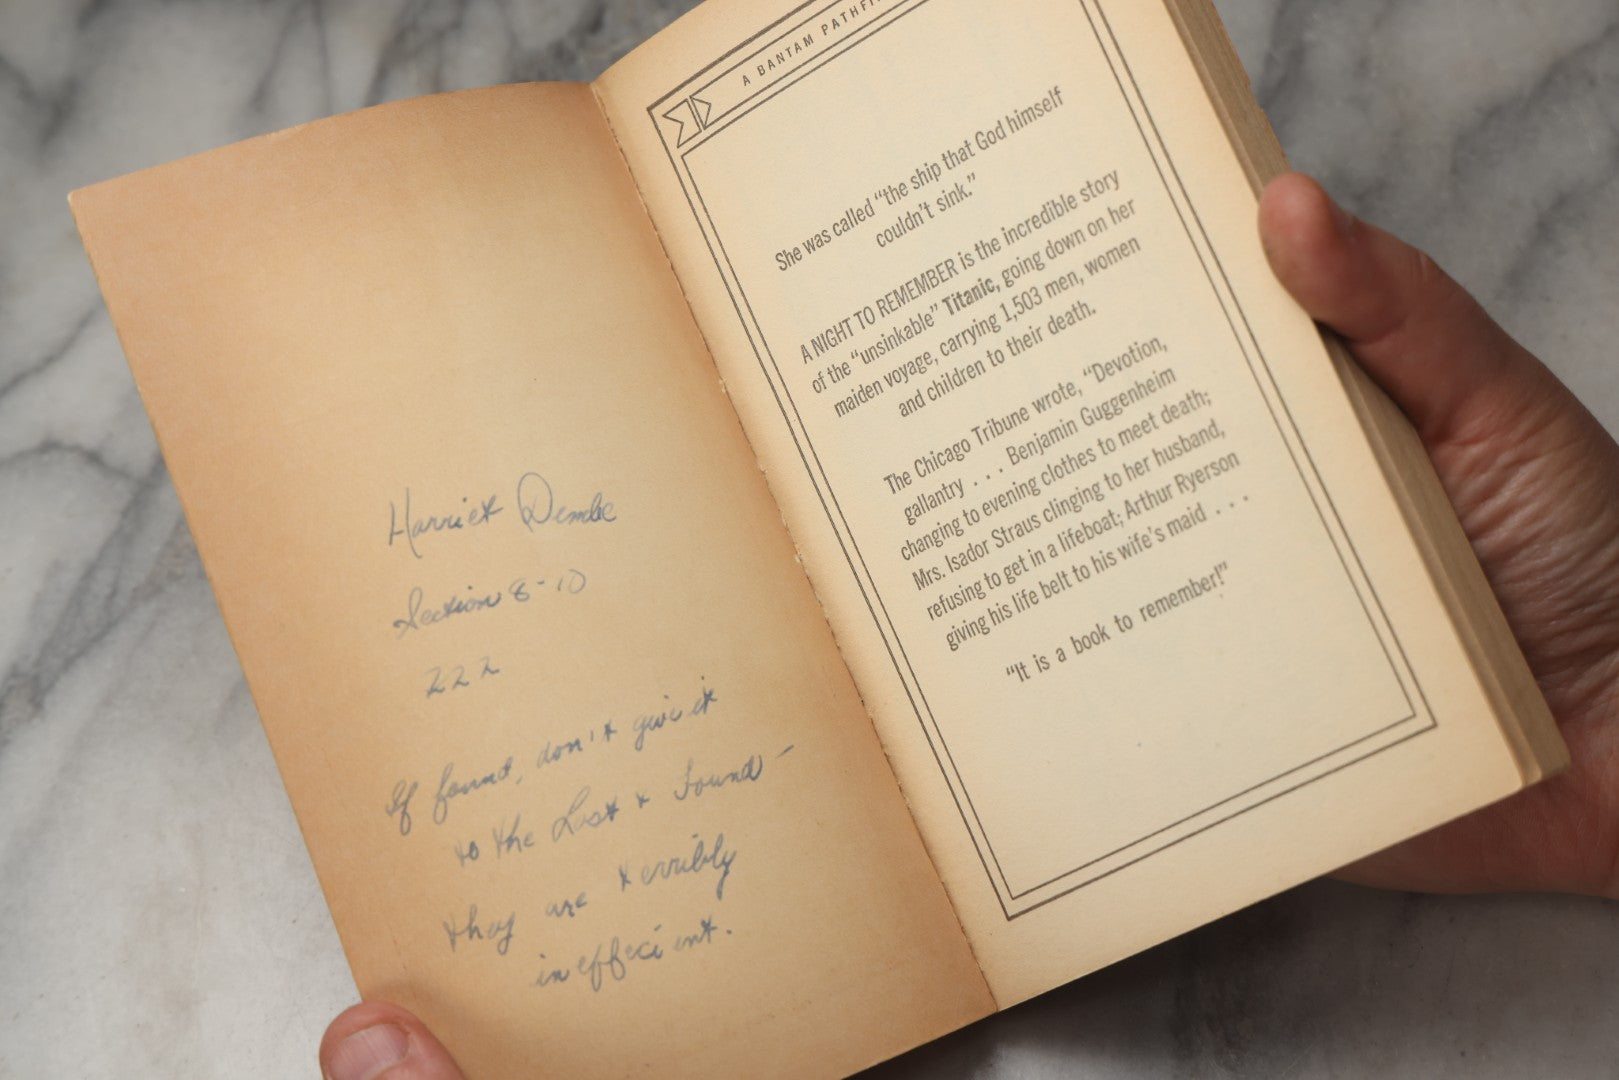 Harriet Dembe
Section 8-10
222
If found, don't give it
to the Lost & Found -
they are terribly
ineffecient.
A BANTAM
She was called “the ship that God himself
couldn’t sink.”
A NIGHT TO REMEMBER is the incredible story
of the “unsinkable” Titanic, going down on her
maiden voyage, carrying 1,503 men, women
and children to their death.
The Chicago Tribune wrote, “Devotion,
gallantry . . . Benjamin Guggenheim
changing to evening clothes to meet death;
Mrs. Isador Straus clinging to her husband,
refusing to get in a lifeboat; Arthur Ryerson
giving his life belt to his wife’s maid . . .
“It is a book to remember!”